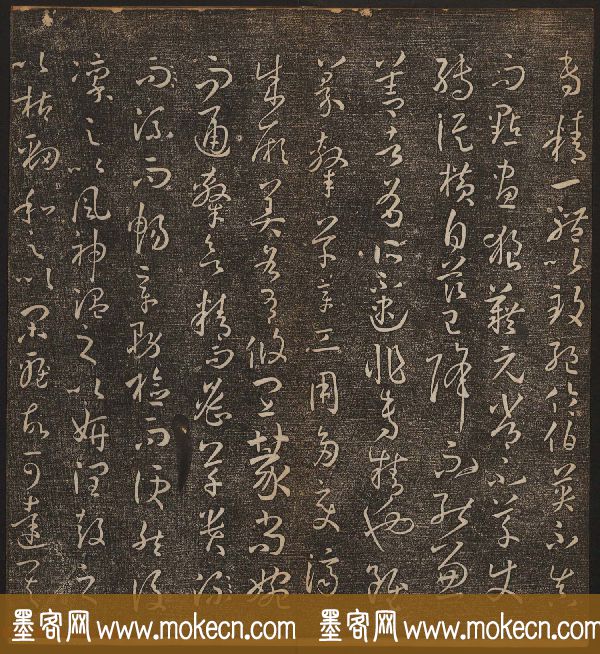 專精一體以致絕倫伯英不真
而點畫狼藉元常不草使
轉縱橫自茲已降不能兼
善者有所不逮非專精也雖
篆隸草章工用多變濟
成厥美各有攸宜篆尚婉
而通隸欲精而密草貴流
而流而暢章務檢而便然後
凜之以風神溫之以妍潤鼓之
以枯勁和之以閑雅故可達其
墨客网 www.mokecn.com 墨客网 www.mokecn.com